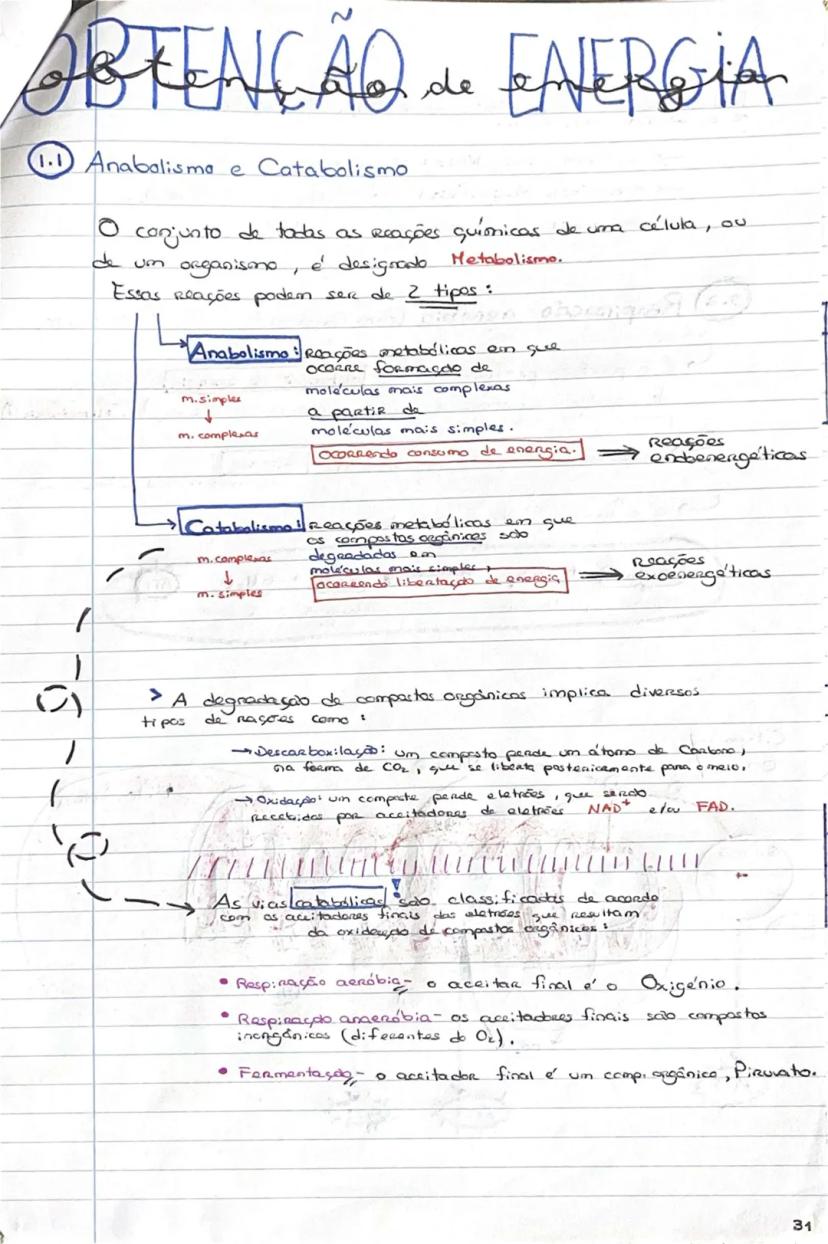 OBTENÇÃO de ENERGIA
obtenção de energia
1.1 Anabolismo e Catabolismo
O conjunto de todas as reações químicas de uma célula, ou
de um organismo, é designado Metabolismo.
Essas reações podem ser de 2 tipos:
Anabolismo: Reações metabólicas em que
ocorre formação de
moléculas mais complexas
a partir de
moléculas mais simples.
m. simples
↓
m. complexas
ocorrendo consumo de energia. ⇒ Reações
endoenergéticas
Catabolismo: Reações metabólicas em que
os compostos orgânicos são
degradados em
moléculas mais simples,
m. complexas
↓
m. simples
ocorrendo libertação de energia ⇒ Reações
exoenergéticas
> A degradação de compostos orgânicos implica diversos
tipos de reações como:
→ Descarboxilação: um composto perde um átomo de Carbono,
na forma de CO₂, que se liberta posteriormente para o meio.
→ Oxidação: um composto perde eletrões, que serão
recebidos por aceitadores de eletrões NAD⁺ e/ou FAD.
As vias catabólicas! são classificadas de acordo
com os aceitadores finais dos eletrões que resultam
da oxidação de compostos orgânicos:
• Respiração aeróbia - o aceitar final é o Oxigénio.
• Respiração anaeróbia - os aceitadores finais são compostos
inorgânicos (diferentes do O₂).
• Fermentação - o aceitador final é um comp. orgânico, Piruvato.
31